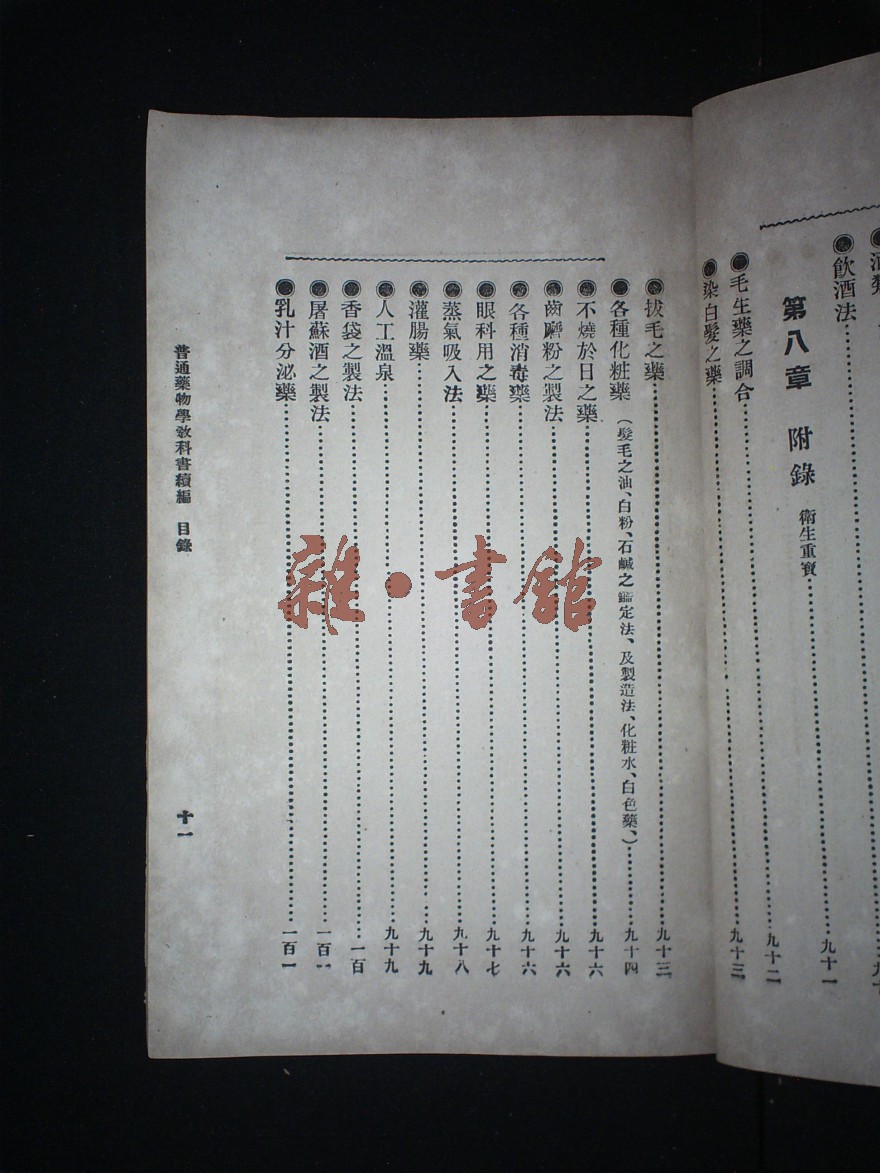 飲酒法……九十一
第八章 附錄 衛生重寶……九十二
●毛生藥之調合……九十三
●染白髮之藥
●拔毛之藥……九十三
●各種化粧藥(髮毛之油、白粉、石鹹之鑑定法、及製造法、化粧水、白色藥、)……九十四
●不燒於日之藥……九十六
●齒磨粉之製法……九十六
●各種消毒藥……九十六
●眼科用之藥……九十七
●蒸氣吸入法……九十八
●灌腸藥……九十九
●人工溫泉……九十九
●香袋之製法……一百
●屠蘇酒之製法……一百一
●乳汁分泌藥……一百一
普通藥物學教科書續編 目錄 十一
雜·書館